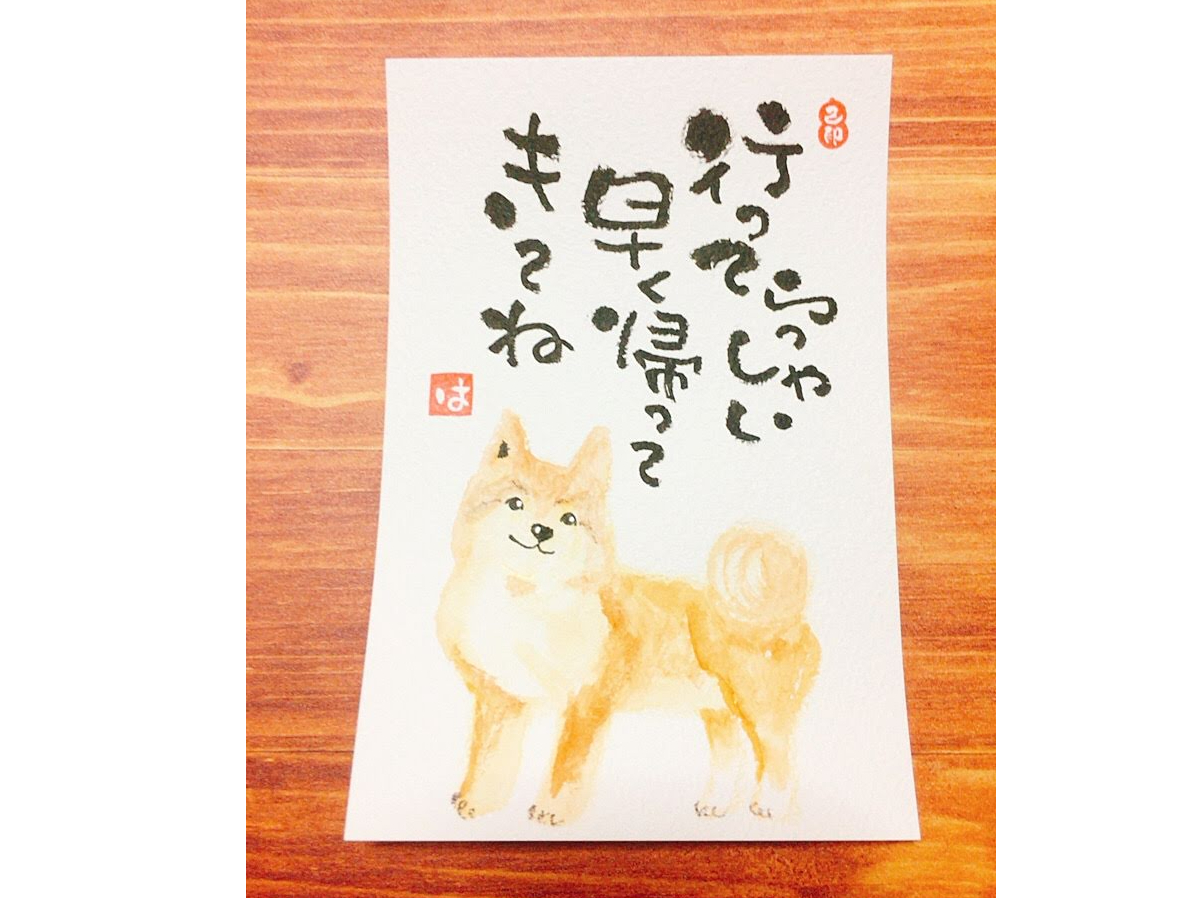 行ってらっしゃい
早く帰って
きてね
は